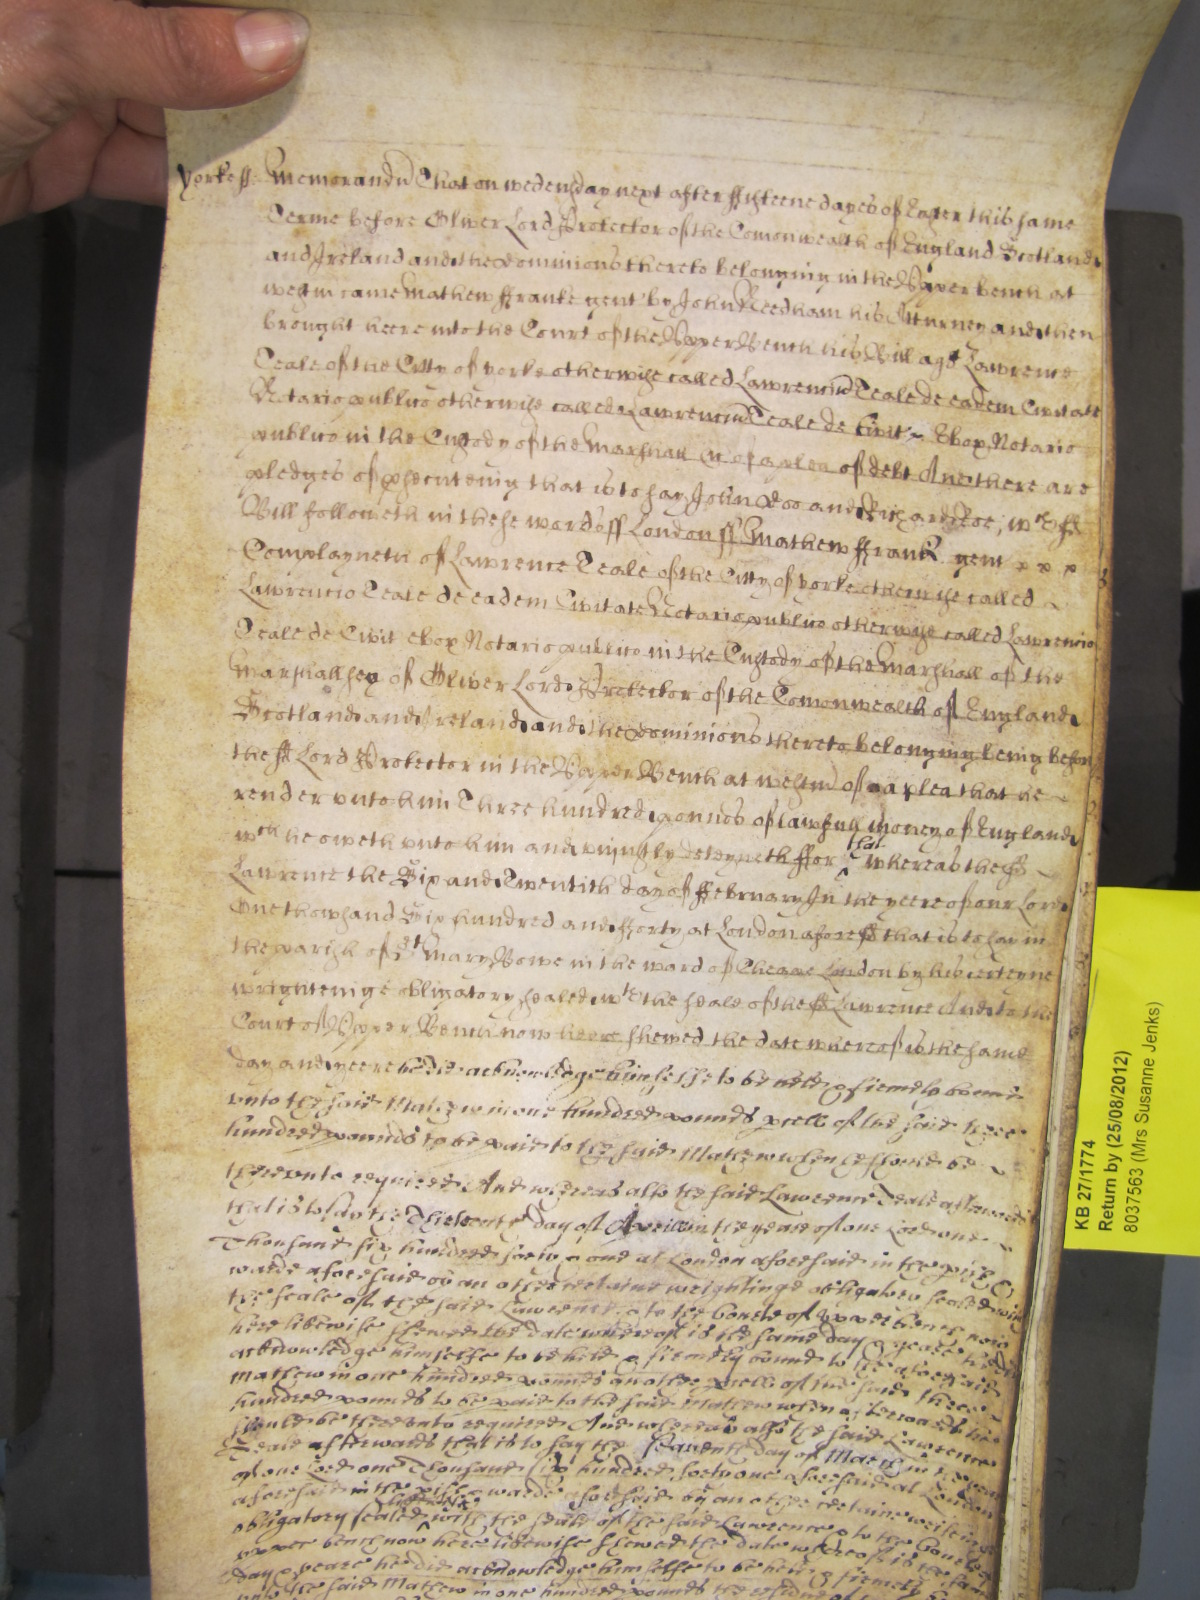 Yorke ff. Memorandu That on wedensday next after ffifteene dayes of Easter this same
Terme before Oliver Lord Protector of the Comonwealth of England Scotland
and Ireland and the dominions thereto belonging in the Upper bench at
westm came Mathew ffranke gent by John Needham his Atturney and then
brought heere into the Court of the Upper Bench his Bill agt Lawrence
Teale of the Citty of yorke otherwise called Lawrencium Teale de eadem Civitate
Notario publico otherwise called Lawrencium Teale de Civit Ebor Notario
publico in the Custody of the Marshall &c of a plea of debt And there are
pledges of prosecuteing that is to say John Doo and Richard Roe, wch sd
Bill followeth in these words ss London ss Mathew ffrank gent
Complayneth of Lawrence Teale of the Citty of yorke otherwise called
Lawrencio Teale de eadem Civitate Notario publico otherwise called Lawrencio
Teale de Civit ebor Notario publico in the Custody of the Marshall of the
Marshallsey of Oliver Lord Protector of the Comonwealth of England
Scotland and Ireland and the dominions thereto belonging being before
the sd Lord Protector in the Upper Bench at westm of a plea that he
render unto him Three hundred pounds of lawfull money of England
wch he oweth unto him and uniustly deteyneth ffor that whereas the sd
Lawrence the Six and Twentith day of ffebruary In the yeere of our Lord
One thowsand Six hundred and fforty at London aforesd that is to say in
the parish of St Mary Bowe in the ward of Cheape London by his certeyne
wrighteinge obligatory sealed wth the seale of the sd Lawrence And to the
Court of Upper Bench now heere shewed the date whereof is the same
day and yeere he did acknowledge himselfe to be held & firmely bound
unto the said Mathew in one hundred pounds pcell of the said three
hundred pounds to be paid to the said Mathew when he should be
thereunto required And whereas also the said Lawrence Teale afterwards
that is to say the Thirteenth day of Aprill in the yeare of our Lord one
Thousand six hundred forty & one at London aforesaid in the pish &
warde aforesaid by an other certaine wrightinge obligatory sealed with
the seale of the said Lawrence & to the Courte of upper bench now
here likewise shewed the date whereof is the same day & yeare hee did
acknowledge himselfe to be held & firmely bound to the aforesaid
Mathew in one hundred pounds another pcell of the said three
hundred pounds to be paid to the said Mathew when afterwards hee
should be thereunto required And whereas also the said Lawrence
Teale afterwards that is to say the seaventh day of March in the yeare
of our Lord one Thousand six hundred forty one aforesaid at London
aforesaid in the pish & warde aforesaid by an other certaine writeinge
obligatory sealed with the seale of the said Lawrence & to the Courte of
upper bench now here likewise shewed the date whereof is the same
day & yeare hee did acknowledge himselfe to be held & firmely
unto the said Mathew in one hundred pounds the residue of
KB 27/1774
Return by (25/08/2012)
8037563 (Mrs Susanne Jenks)